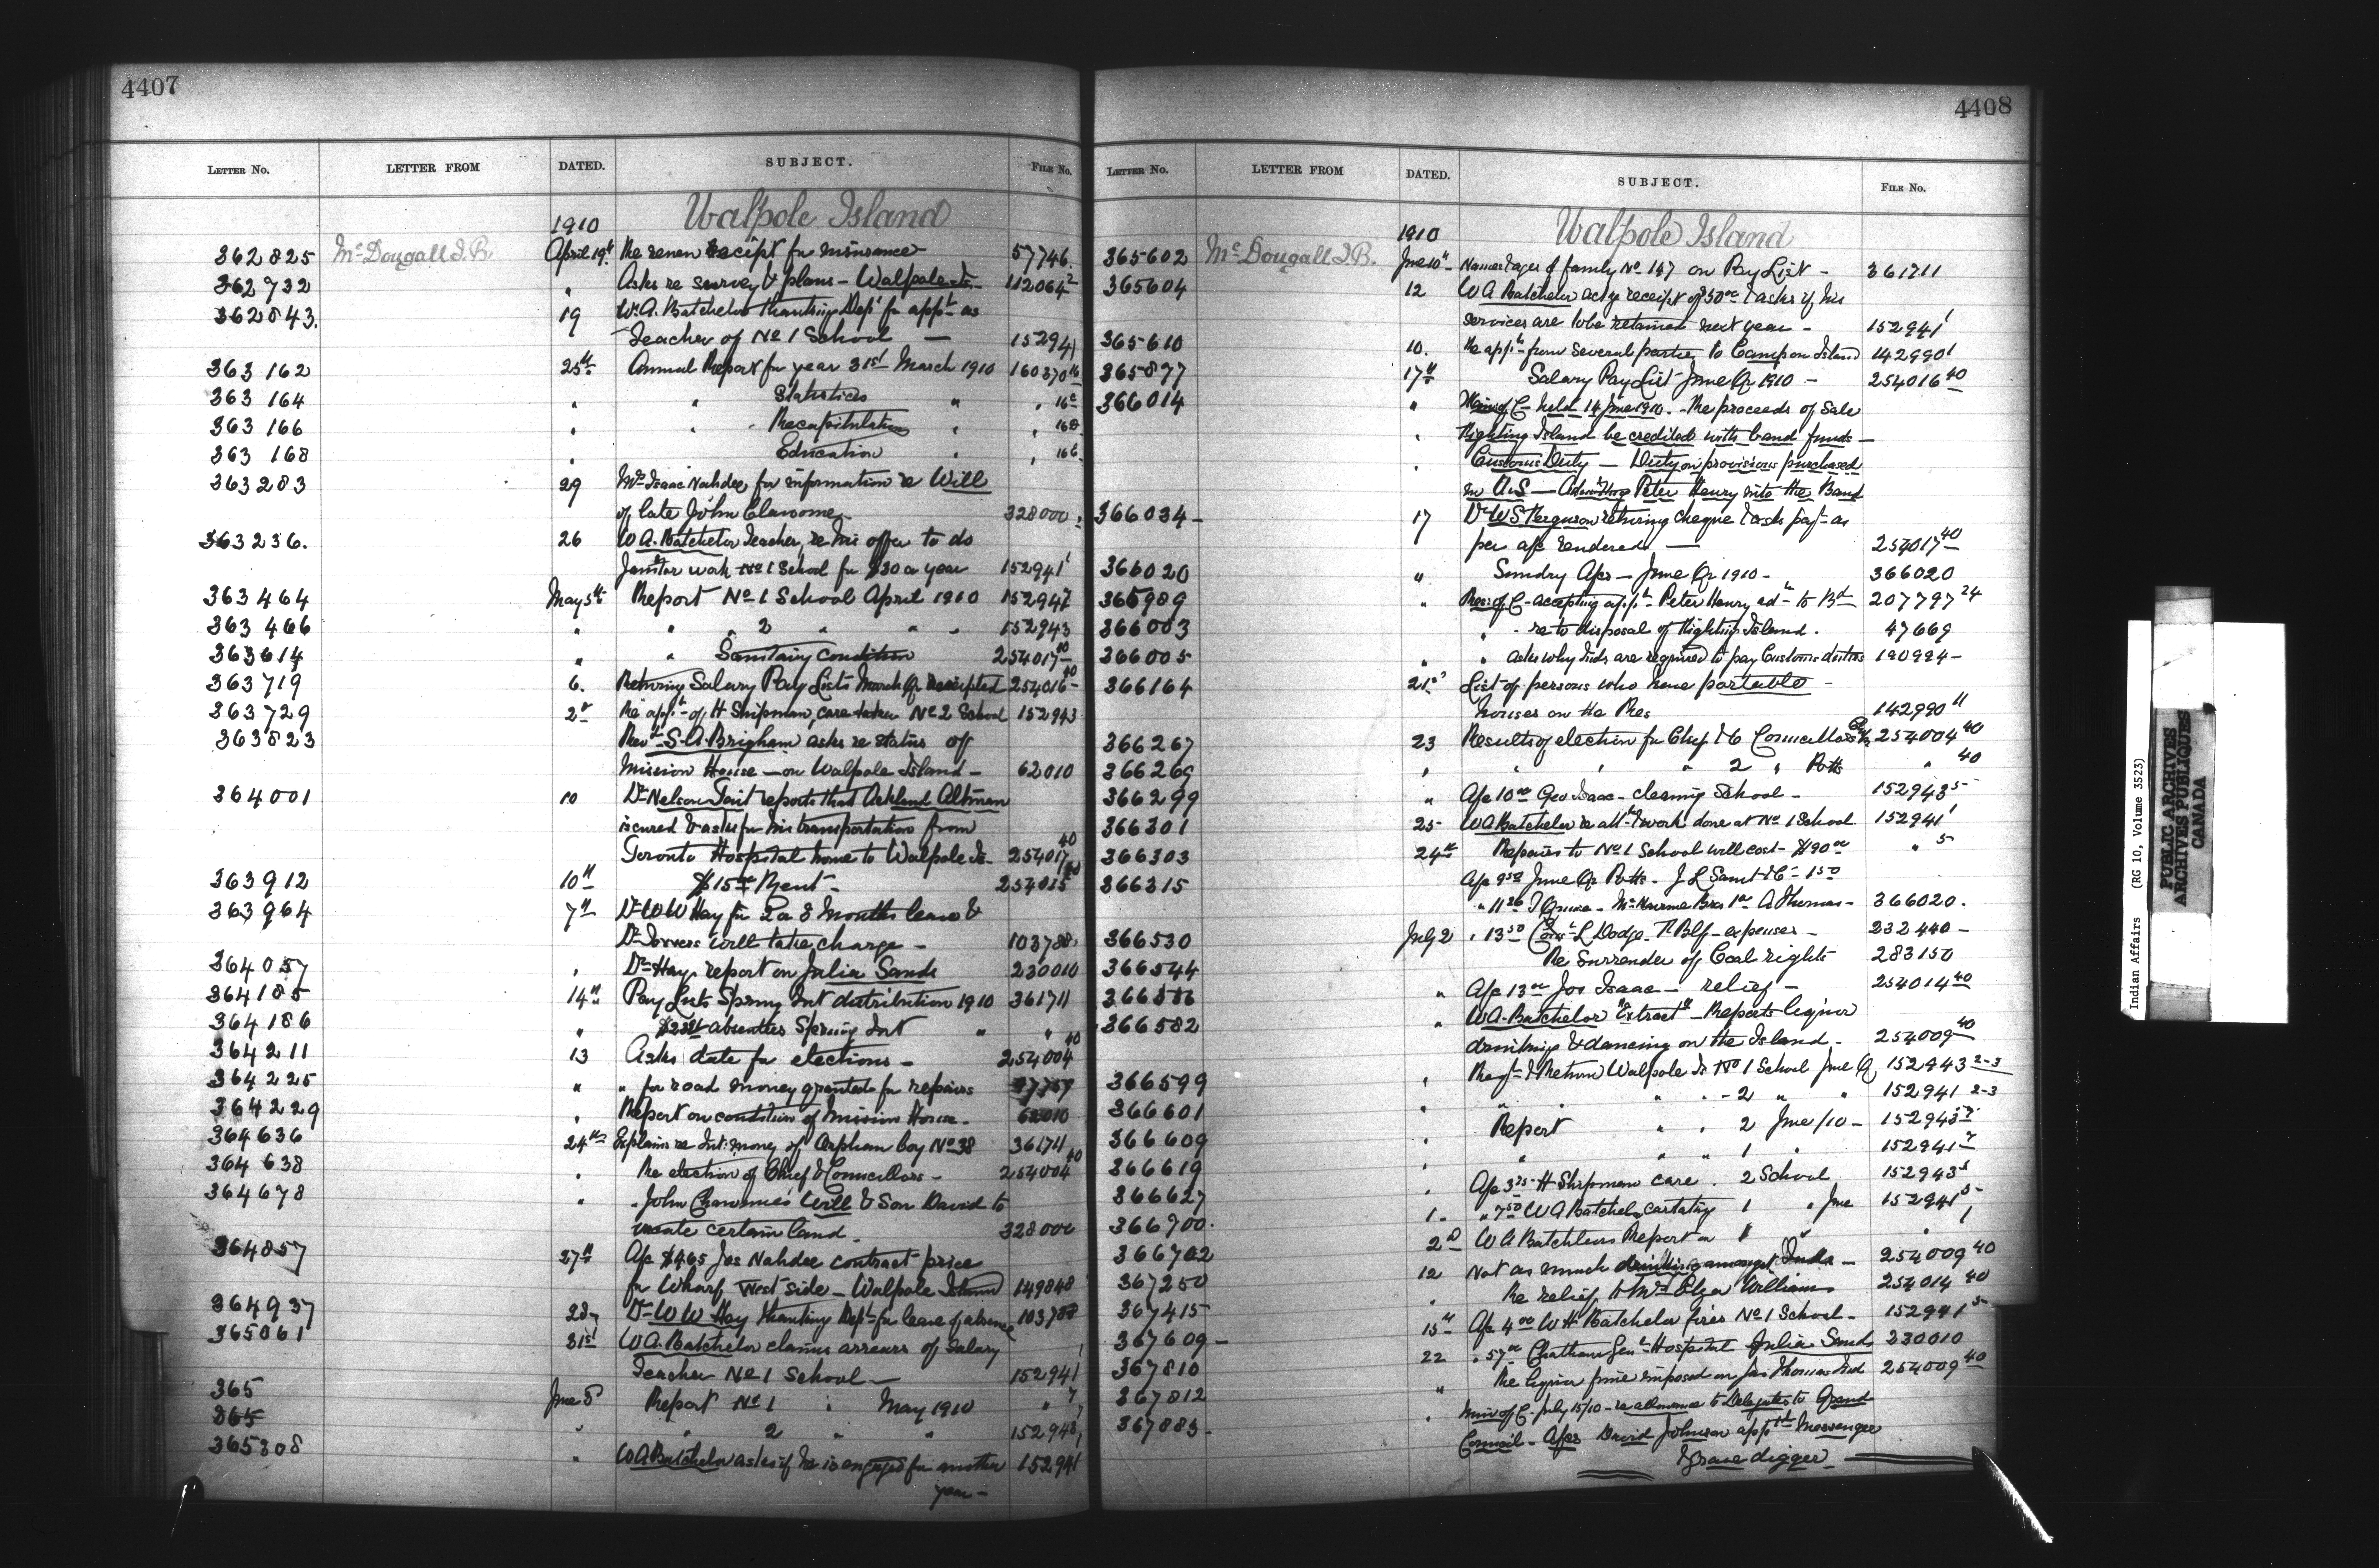 4407
LETTER NO. LETTER FROM DATED. SUBJECT. FILE NO.
1910 Walpole Island
362825 McDougall J.B. April 19th Re renew Receipt for insurance 57746.
362732 " Asks re survey & plans - Walpole Is. 112064²
362843. 19 W.A. Batchelor thanking Dept for apptt as
Teacher of No 1 School — 152941
363162 25th Annual Report for year 31st March 1910 160370
363164 " " Statistics " "
363166 " " Recapitulation " "
363168 " Education " "
363283 29 Mrs Isaac Nahdee for information re Will
of late John 328000
363236. 26 W A. Batchelor Teacher, re his offer to do
Janitor work No 1 School for $30 a year 152941¹
363464 May 5th Report No 1 School April 1910 152941
363466 " " 2 " " " 152943
363614 " " Sanitary condition 254017 40
363719 6. Returning Salary Pay Lists March Qr Receipted 254016 40
363729 2d Re appt of H Shipman, care taker No 2 School 152943
363823 Revd S.A. Brigham asks re status of
Mission House — on Walpole Island - 62010
364001 10 Dr Nelson Tait reports that Ackland Altman
is cured & asks for his transportation from
Toronto Hospital home to Walpole Is. 254017 40
363912 10th $15.00 Rent - 254015 40
363964 7th Dr W W Hay for 2 or 3 Months leave &
Dr will take charge - 103788
364057 " Dr Hay, report on Julia Sands 230010
364185 14th Pay Lists Spring Int distribution 1910 361711
364186 " absentees Spring Int " "
364211 13 Asks date for elections - 254004 40
364225 " " for road money granted for repairs
364229 " Report on condition of Mission House - 62010
364636 24th Explains re Int: money of Orphan boy No 38 361711
364638 " Re election of Chief & Councillors - 254004 40
364678 " " John Will & Son David to
certain land. 328000
364857 27th A/c $465 Jos Nahdee contract price
for Wharf West side - Walpole Island 149848
364937 28 Dr W W Hay thanking Dept for leave of absence 103788
365061 31st W A. Batchelor claims arrears of Salary
Teacher No 1 School — 152941¹
365 June 8 Report No 1 " May 1910 " 7
365 " " 2 " " 152943
365308 " W A Batchelor asks if he is engaged for another 152941
year -
4408
LETTER NO. LETTER FROM DATED. SUBJECT. FILE NO.
1910 Walpole Island
365602 McDougall J.B. June 10th Names & ages of family No 147 on Pay List - 361711
365604 12 W A Batchelor ackg receipt of $30.00 & asks if his
services are to be retained next year - 152941¹
365610 10. Re appts from several parties to Camp on Island 142990¹
365877 17th Salary Pay List June Qr 1910 - 254016 40
366014 " Min of C- held 14 June 1910. - Re proceeds of Sale
" Island be credited with band funds -
" Customs Duty — Duty on provisions purchased
in U.S — Admitting Peter Henry into the Band
366034 - 17 Dr W S Ferguson returning cheque & asks payt as
per a/c rendered — 254017 40
366020 " Sundry A/cs - June Qr 1910 - 366020
365989 " Res: of C- accepting appt Peter Henry adtn to Bd 207797 24
366003 " " re to disposal of Island. 47669
366005 " " asks why Inds are required to pay Customs duties 190994 -
366164 21st List of persons who have portable -
houses on the Res 142990 11
366267 23 Results of election for Chief & C Councillors 254004 40
366269 " " " " 2 " Potts " 40
366299 " A/c 10.00 Geo Isaac - cleaning School - 152943 5
366301 25 W A Batchelor re att & work done at No 1 School 152941¹
366303 24th Repairs to No 1 School will cost - $90.00 " 5
366315 A/c 9.50 June Qr Potts. J L 1.50
" 11.26 - Bros 1.00 A Thomas - 366020.
366530 July 2 " 13.50 L Dodge - expenses - 232440 -
366544 Re Surrender of Coal rights 283150
" A/c 13.00 Jos Isaac - relief - 254014 40
366582 " W A. Batchelor "Extract" - Reports liquor
drinking & dancing on the Island. 254009 40
366599 " Regr & Return Walpole Is No 1 School June Q 152943 2-3
366601 " " " - 2 " " 152941 2-3
366609 " Report " " 2 June/10 - 152943 7
366619 " " " " 1 " 152941 7
366627 " A/c 3.25 H Shipman care. 2 School 152943 5
366700. 1. " 7.50 W A Batchelor 1 " June 152941 5
366702 2d W A Batchelors Report on " " " 1
367250 12 Not as much drinking amongst Inds - 254009 40
" Re relief to Mrs Eliza Williams 254014 40
367415 15th A/c 4.00 W H Batchelor fires No 1 School - 152941 5
367609 - 22 " 57.00 Chatham Genl Hospital Julia Sands 230010
367810 " Re liquor fine imposed on Jas Thomas Ind 254009 40
367812 " Min of C- July 15/10 - re allowance to Delegates to Grand
367883 - Council - A/cs David Johnson apptd Messenger
& Grave digger —
Indian Affairs (RG 10, Volume 3523)
PUBLIC ARCHIVES
ARCHIVES PUBLIQUES
CANADA